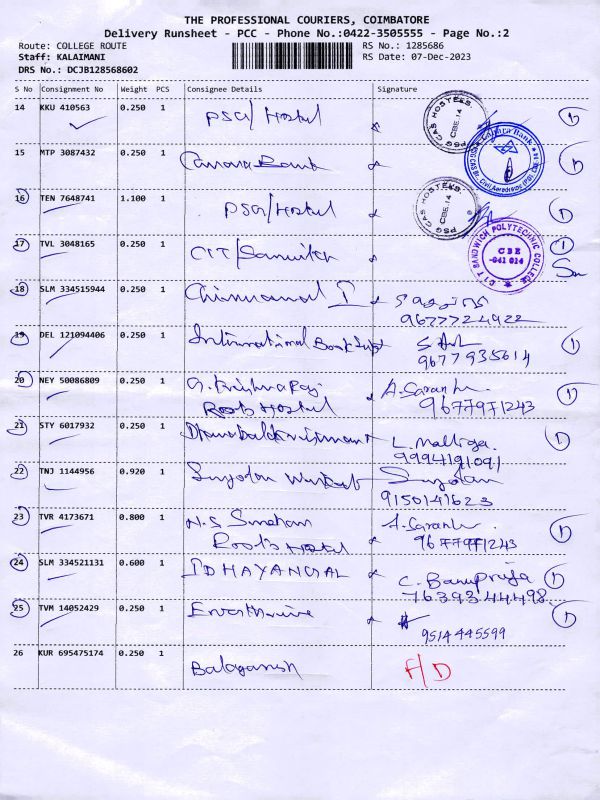 THE PROFESSIONAL COURIERS, COIMBATORE
Delivery Runsheet - PCC - Phone No.:0422-3505555 - Page No.:2
Route: COLLEGE ROUTE
RS No.: 1285686
Staff: KALAIMANI
RS Date: 07-Dec-2023
DRS No.: DCJB128568602
S No Consignment No Weight PCS Consignee Details Signature
14 KKU 410563 0.250 1 PSG/Hostel
PSG CAS HOSTELS. CBE.14
15 MTP 3087432 0.250 1 Canara Bank
16 TEN 7648741 1.100 1 PSG/Hostel
PSG CAS HOSTELS. CBE.14
17 TVL 3048165 0.250 1 CIT/Sanwitch
CIT SANDWICH POLYTECHNIC COLLEGE CBE -641 014
18 SLM 334515944 0.250 1
9677724922
19 DEL 121094406 0.250 1 International Book
9677935614
20 NEY 50086809 0.250 1 G. Krishna Raj A. Saranku
Roots Hostel 9677971243
21 STY 6017932 0.250 1 L. Malliga
9994191091
22 TNJ 1144956 0.920 1
9150141623
23 TVR 4173671 0.800 1 A. Saranku
Roots Hostel 9677971243
24 SLM 334521131 0.600 1 IDHAYANGAL C. Banupriya
7639344498
25 TVM 14052429 0.250 1
9514445599
26 KUR 695475174 0.250 1 Balaganesh F/D